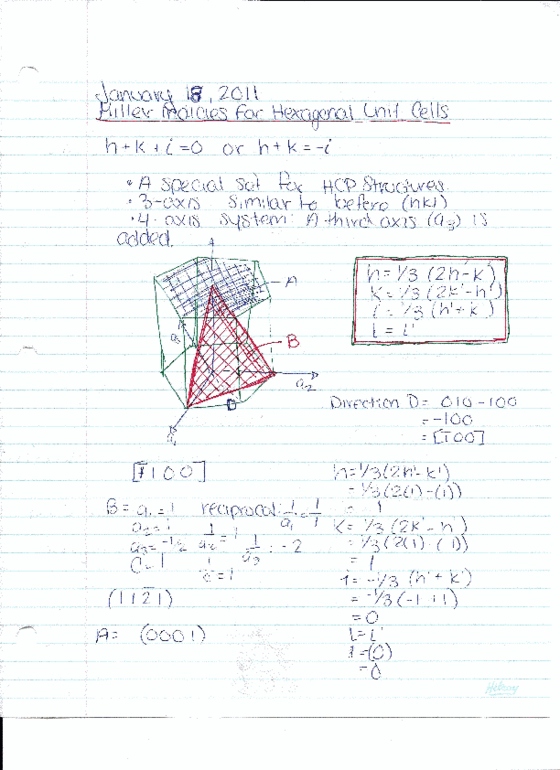 January 18, 2011
Miller Indicies for Hexagonal Unit Cells
h+k+i=0 or h+k=-i
• A special set for HCP Structures
• 3-axis similar to before (hkl)
• 4-axis system: A third axis (a3) is
added.
A
B
a2
D
a1
h=1/3 (2h'-k')
k=1/3 (2k'-h')
i=-1/3 (h'+k')
l=l'
Direction D= 010-100
=-100
=[1̄00]
[1̄100]
B= a1=1 reciprocal: 1/a1=1/1
a2=1 1/a2=1
a3=-1/2 1/a3=-2
C=1 1/c=1
(112̄1)
A= (0001)
h=1/3(2h'-k')
=1/3(2(1)-(1))
=1
k=1/3(2k'-h')
=1/3(2(1)-(1))
=1
i=-1/3 (h'+k')
=-1/3(-1+1)
=0
l=l'
l=(0)
=0
Hilroy